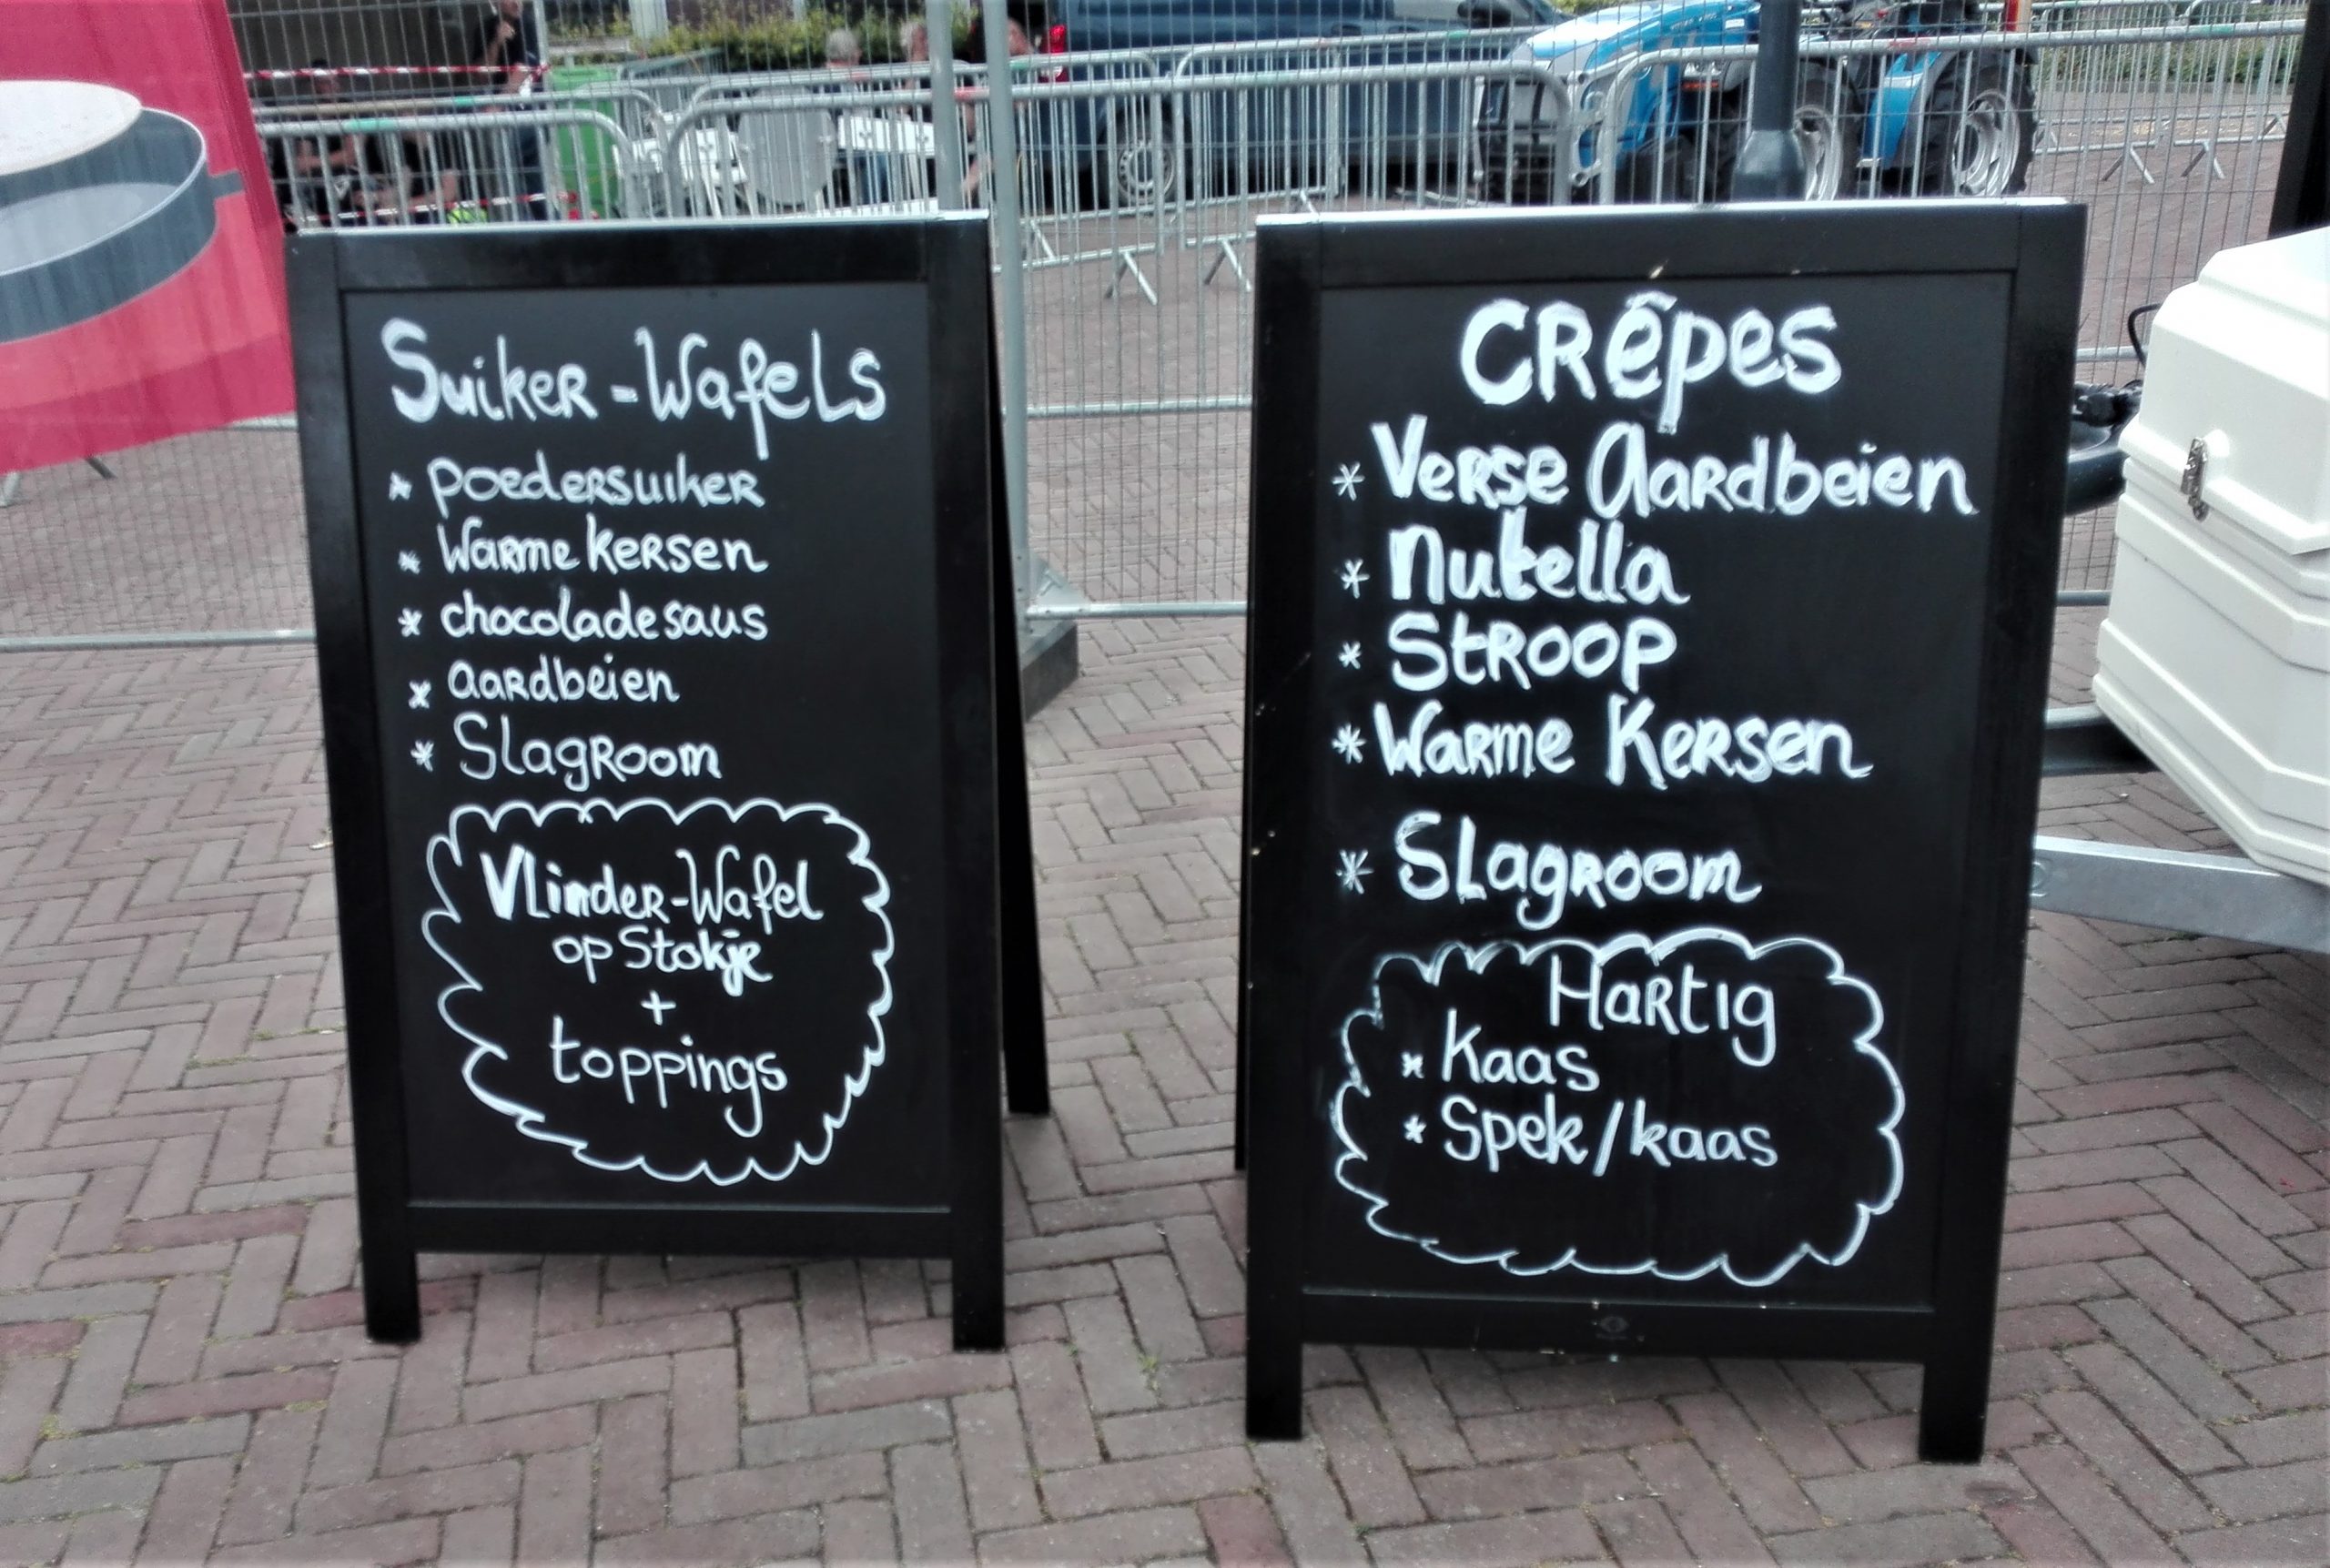 Suiker-Wafels
* poedersuiker
* Warme kersen
* chocoladesaus
* aardbeien
* Slagroom
Vlinder-Wafel
op Stokje
+
toppings
CRêpes
* Verse Aardbeien
* Nutella
* Stroop
* Warme Kersen
* Slagroom
Hartig
* Kaas
* Spek/kaas